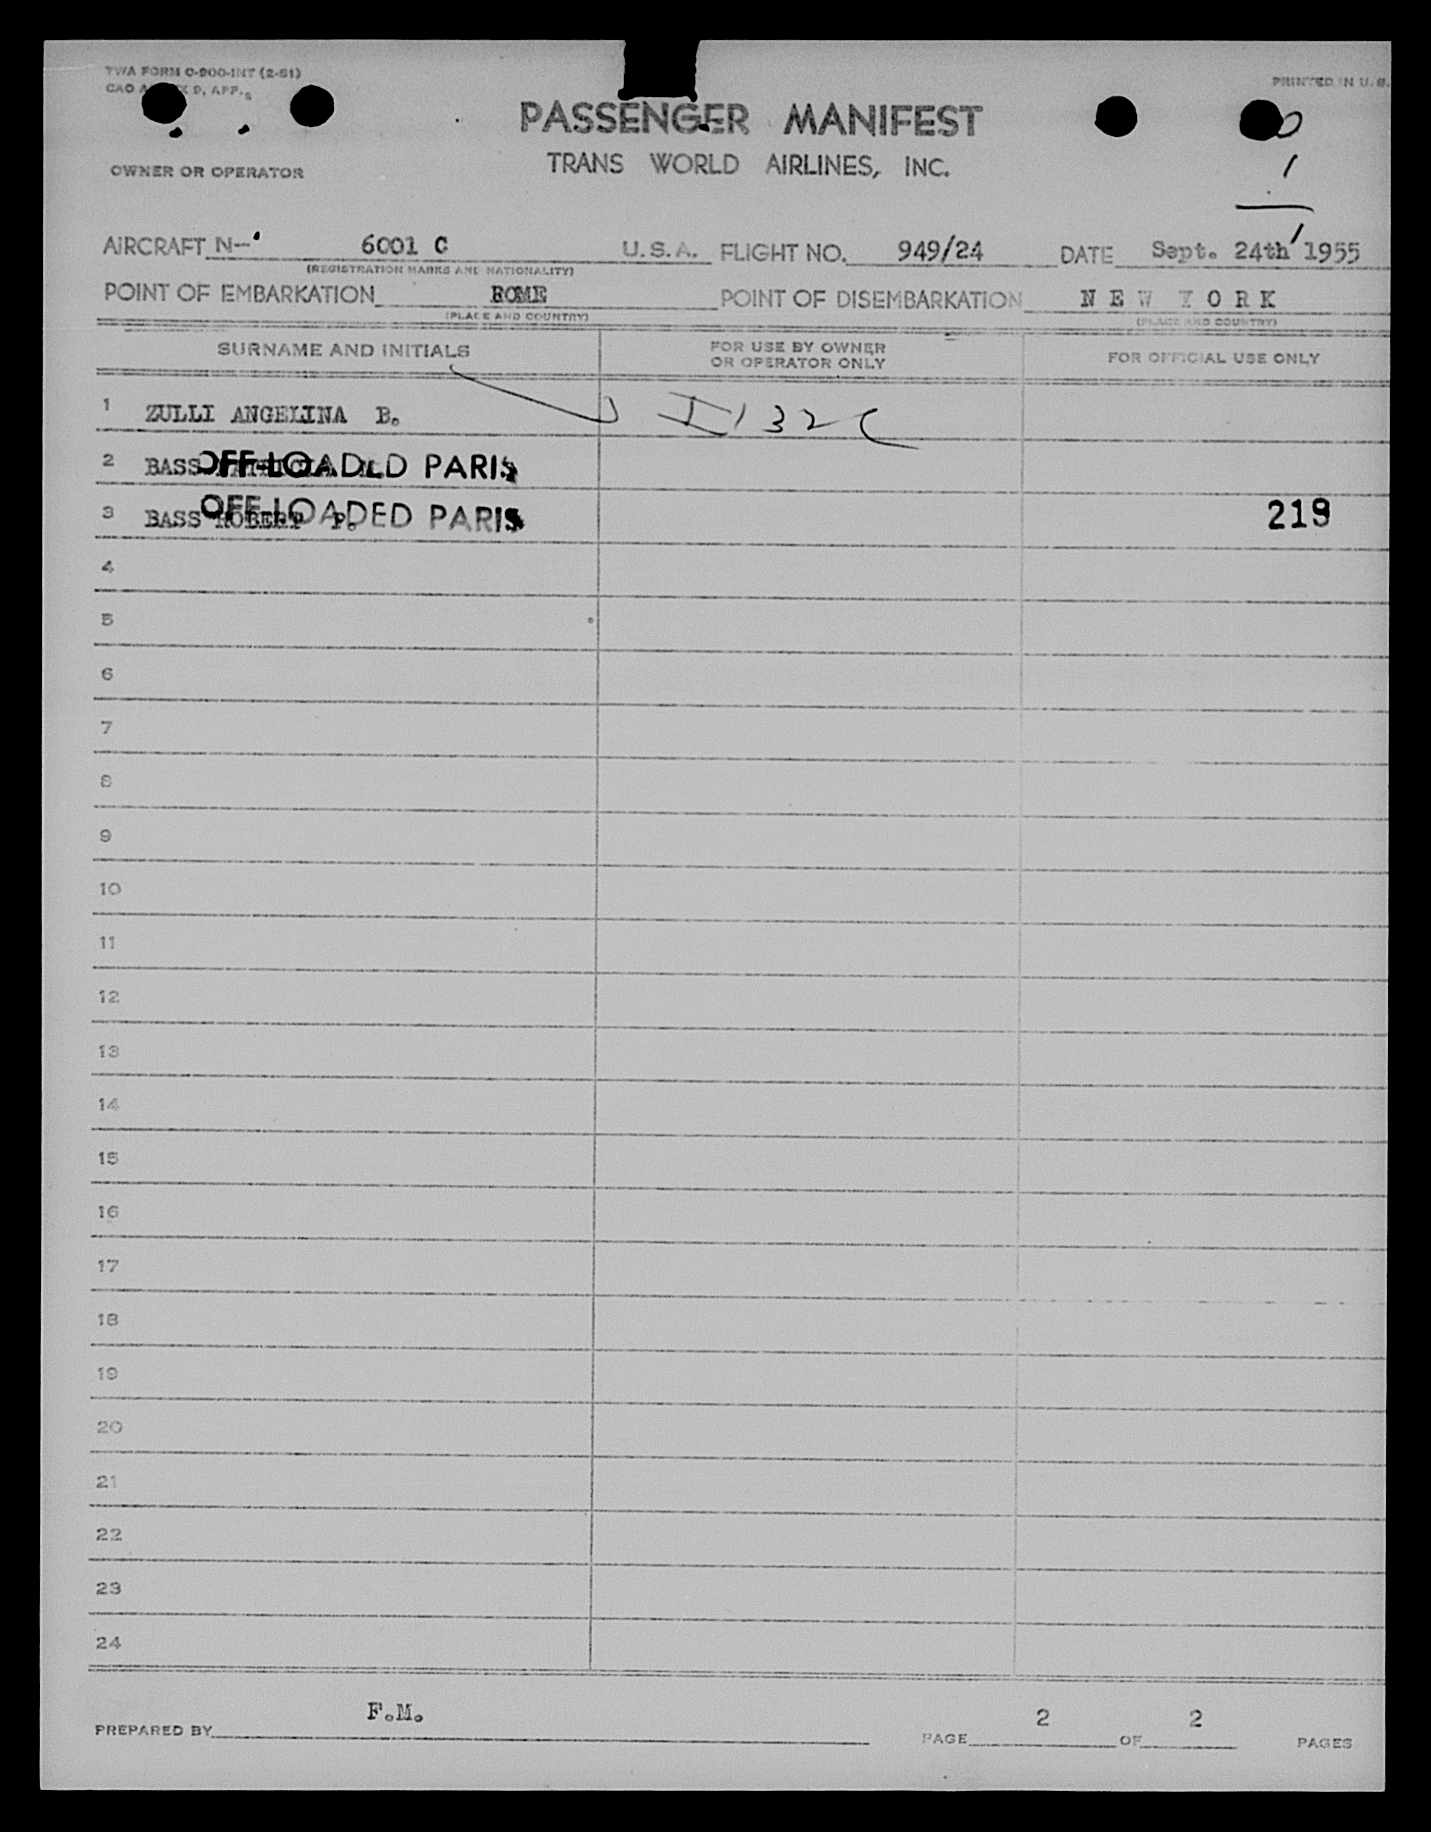 TWA FORM O-900-INT (2-51)
PRINTED IN U. S.
PASSENGER MANIFEST
TRANS WORLD AIRLINES, INC.
OWNER OR OPERATOR
0
1
1
AIRCRAFT N- 6001 C U.S.A. FLIGHT NO. 949/24 DATE Sept. 24th 1955
(REGISTRATION MARKS AND NATIONALITY)
POINT OF EMBARKATION ROME POINT OF DISEMBARKATION NEW YORK
(PLACE AND COUNTRY) (PLACE AND COUNTRY)
SURNAME AND INITIALS FOR USE BY OWNER OR OPERATOR ONLY FOR OFFICIAL USE ONLY
1 ZULLI ANGELINA B. I 132 C
2 BASS OFF-LOADED PARIS
3 BASS ROBERT P. OFF-LOADED PARIS 219
4
5
6
7
8
9
10
11
12
13
14
15
16
17
18
19
20
21
22
23
24
PREPARED BY F.M. PAGE 2 OF 2 PAGES